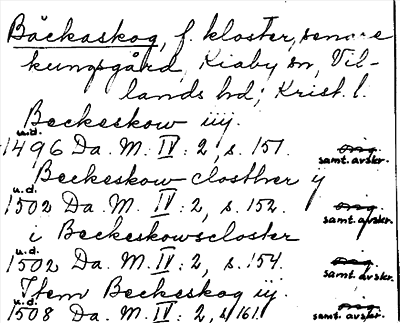 Bäckaskog, f. kloster, senare
kungsgård, Kiaby sn, Vil-
lands hd; Krist. l.
Beckeskow iij.
u.d.
1496 Da. M. IV: 2, s. 151. orig
samt. avskr.
Beckeskow closther ij
u.d.
1502 Da. M. IV: 2, s. 152. orig.
samt. avskr.
i Beckeskowscloster
u.d.
1502 Da. M. IV: 2, s. 154. orig
samt. avskr.
Item Beckeskog iij.
u.d.
1508 Da. M. IV: 2, s. 161 orig
samt. avskr.